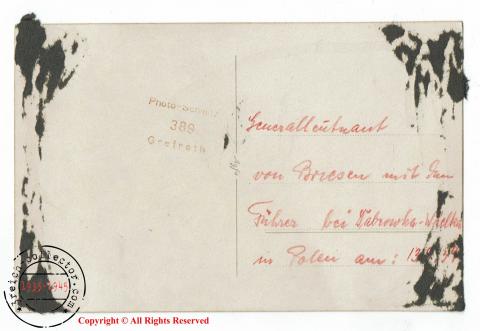 Photo-Schmitz
389
Grefrath
Generalleutnant
von Briesen mit dem
Führer bei Dabrowka-Wielka
in Polen am:
3reich-collector.com
1933-1945
Copyright © All Rights Reserved